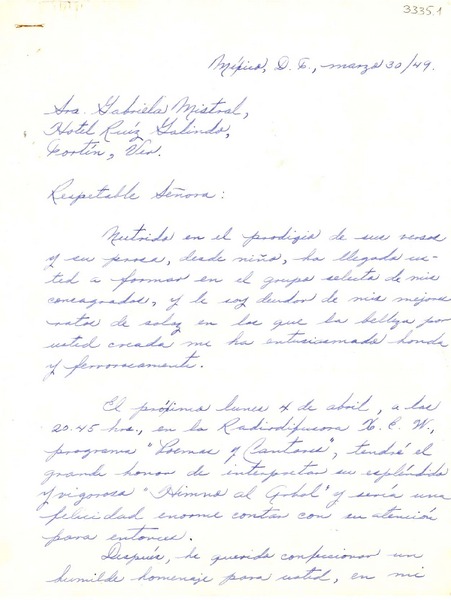 3335.1
México, D. F., marzo 30/49.
Sra. Gabriela Mistral,
Hotel Ruíz Galindo,
Fortín, Ver.
Respetable Señora:
Nutrido en el prodigio de sus versos
y su prosa, desde niño, ha llegado us-
ted a formar en el grupo selecto de mis
consagrados, y le soy deudor de mis mejores
ratos de solaz en los que la belleza por
usted creada me ha entusiasmado honda
y fervorosamente.
El próximo lunes 4 de abril, a las
20.45 hrs., en la Radiodifusora X. E. W.,
programa "Poemas y Cantares", tendré el
grande honor de interpretar su espléndido
y vigoroso "Himno al Arbol" y sería una
felicidad enorme contar con su atención
para entonces.
Después, he querido confeccionar un
humilde homenaje para usted, en mi